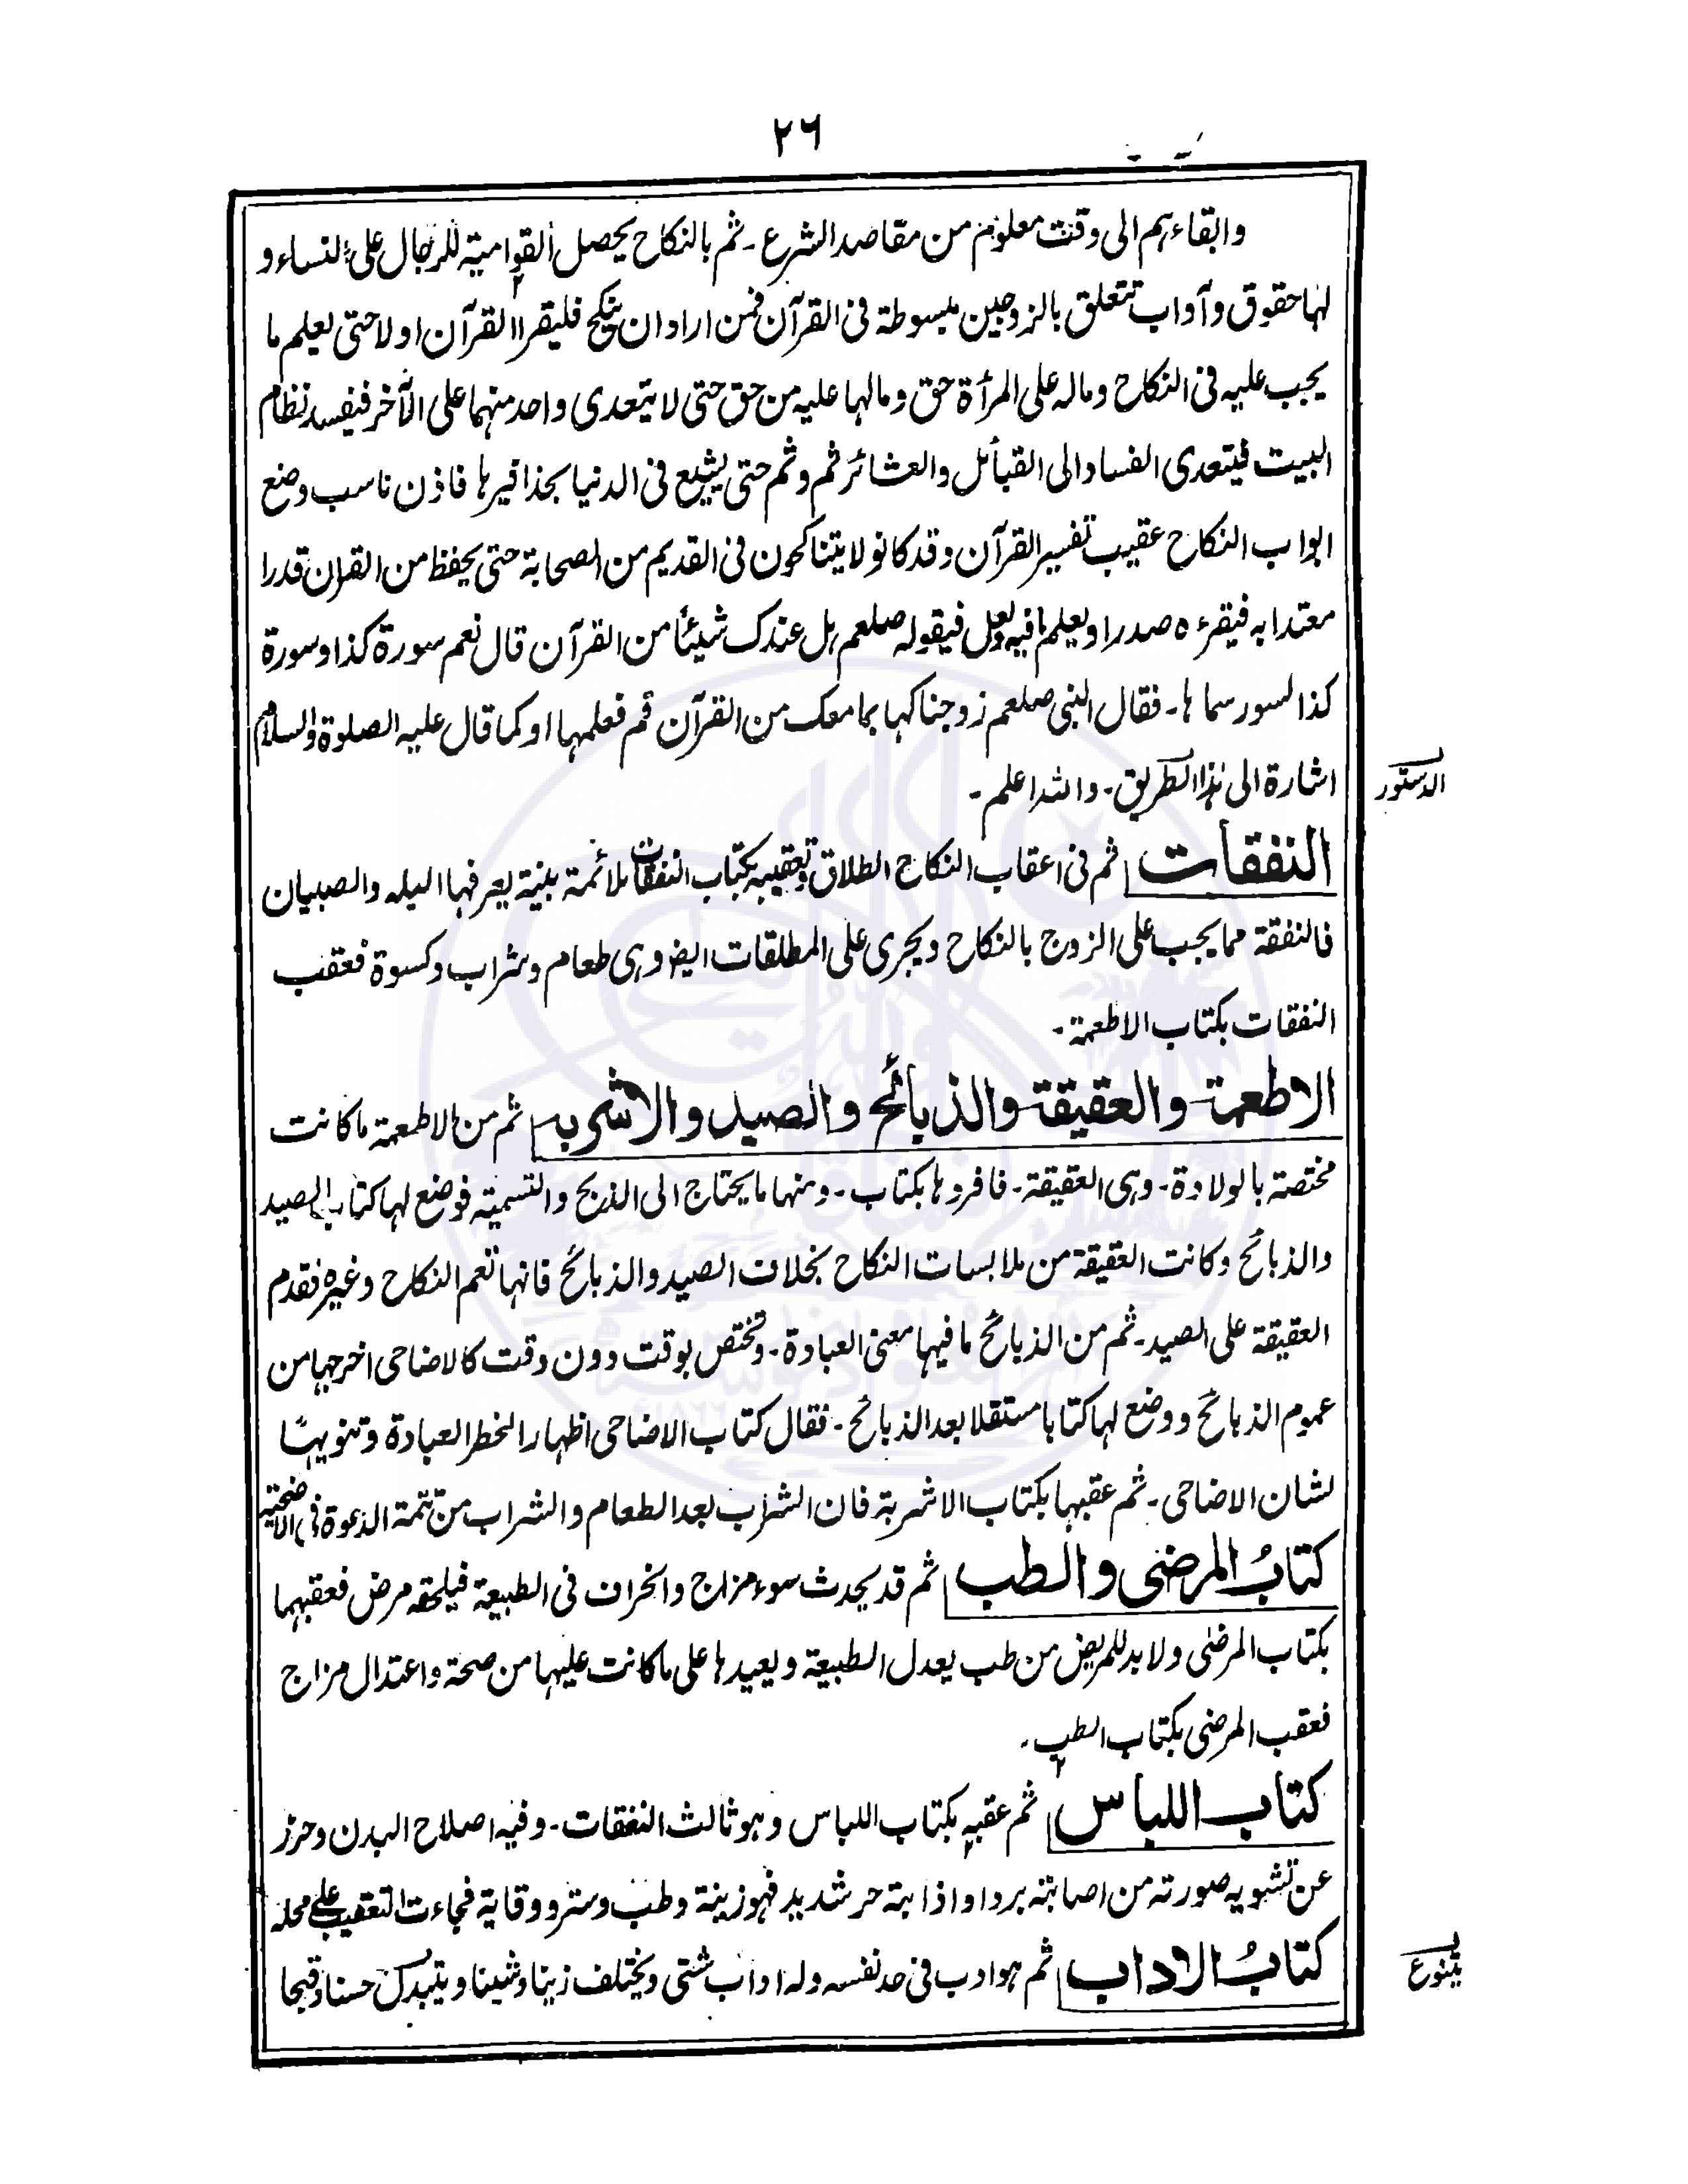 ٢٦
وابقاءہم الی وقت معلوم من مقاصد الشرع ۔ ثم بالنکاح یحصل القوامیة للرجال علی النساء و
لہا حقوق وآداب تتعلق بالزوجین مبسوطة فی القرآن فمن اراد ان ینکح فلیقرا القرآن اولا حتی یعلم ما
یجب علیہ فی النکاح وما لہ علی المرأة حق وما لہا علیہ من حق حتی لا یتعدی واحد منہما علی الآخر فیفسد نظام
البیت فیتعدی الفساد الی القبائل والعشائر ثم وثم حتی یشیع فی الدنیا بحذافیرہا فاذن ناسب وضع
ابواب النکاح عقیب تفسیر القرآن وقد کانو لا یتناکحون فی القدیم من الصحابة حتی یحفظ من القران قدرا
معتدا بہ فیقرءہ صدرا ویعلم ما فیہ فیقولہ صلعم ہل عندک شیئا من القرآن قال نعم سورة کذا وسورة
کذا لسور سماہا ۔ فقال النبی صلعم زوجناکہا بما معک من القرآن قم فعلمہا او کما قال علیہ الصلوة والسلام
اشارة الی ہذا الطریق ۔ واللہ اعلم ۔
الدستور
النفقات ثم فی اعقاب النکاح الطلاق وتعقیبہ بکتاب النفقات ملائمة بینة یعرفہا البلہ والصبیان
فالنفقة مما یجب علی الزوج بالنکاح ویجری علی المطلقات ایضا وہی طعام وشراب وکسوة فعقب
النفقات بکتاب الاطعمة ۔
الاطعمة والعقیقة والذبائح والصید والاشربہ ثم من الاطعمة ما کانت
مختصة بالولادة ۔ وہی العقیقة ۔ فافردہا بکتاب ۔ ومنہا ما یحتاج الی الذبح والتسمیة فوضع لہا کتاب الصید
والذبائح وکانت العقیقة من ملابسات النکاح بخلاف الصید والذبائح فانہا تعم النکاح وغیرہ فقدم
العقیقة علی الصید ۔ ثم من الذبائح ما فیہا معنی العبادة ۔ وتختص بوقت دون وقت کالاضاحی اخرجہا من
عموم الذبائح ووضع لہا کتابا مستقلا بعد الذبائح ۔ فقال کتاب الاضاحی اظہارا لخطر العبادة وتنویہا
لشان الاضاحی ۔ ثم عقبہا بکتاب الاشربة فان الشراب بعد الطعام والشراب من تتمة الدعوة فی الاضحیة
کتابُ المرضی والطب ثم قد یحدث سوء مزاج وانحراف فی الطبیعة فیلحقہ مرض فعقبہما
بکتاب المرضی ولا بد للمریض من طب یعدل الطبیعة ویعیدہا علی ما کانت علیہا من صحة واعتدال مزاج
فعقب المرضی بکتاب الطب ۔
کتاب اللباس ثم عقبہ بکتاب اللباس وہو ثالث النفقات ۔ وفیہ اصلاح البدن وحرز
عن تشویہ صورتہ من اصابتہ برد او اذابتہ حر شدید فہو زینة وطب وستر ووقایة فجاءت التعقیب علی محلہ
کتابُ الاداب ثم ہو ادب فی حد نفسہ ولہ اداب شتی ویختلف زینا وشینا ویتبدل حسنا وقبحا
یتنوع